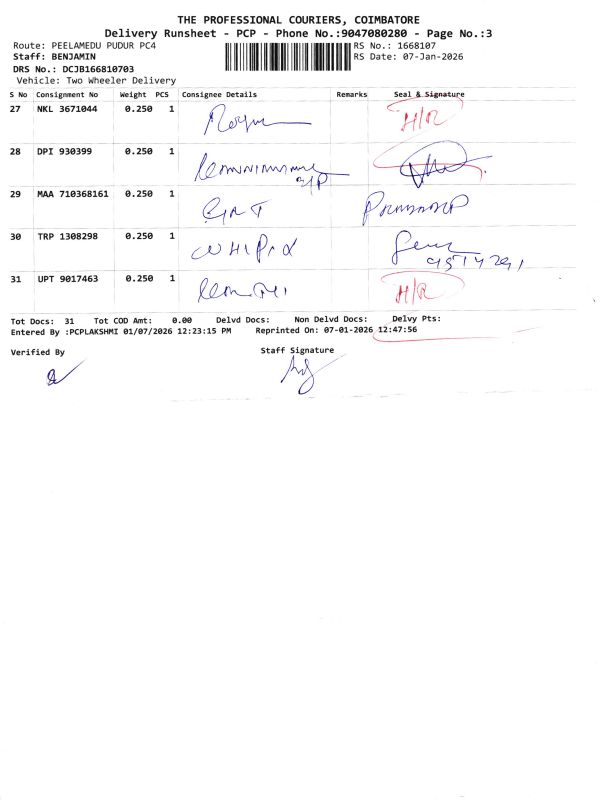 THE PROFESSIONAL COURIERS, COIMBATORE
Delivery Runsheet - PCP - Phone No.:9047080280 - Page No.:3
Route: PEELAMEDU PUDUR PC4 RS No.: 1668107
Staff: BENJAMIN RS Date: 07-Jan-2026
DRS No.: DCJB166810703
Vehicle: Two Wheeler Delivery
S No Consignment No Weight PCS Consignee Details Remarks Seal & Signature
27 NKL 3671044 0.250 1 H/R
28 DPI 930399 0.250 1
29 MAA 710368161 0.250 1
30 TRP 1308298 0.250 1
31 UPT 9017463 0.250 1 H/R
Tot Docs: 31 Tot COD Amt: 0.00 Delvd Docs: Non Delvd Docs: Delvy Pts:
Entered By :PCPLAKSHMI 01/07/2026 12:23:15 PM Reprinted On: 07-01-2026 12:47:56
Verified By Staff Signature